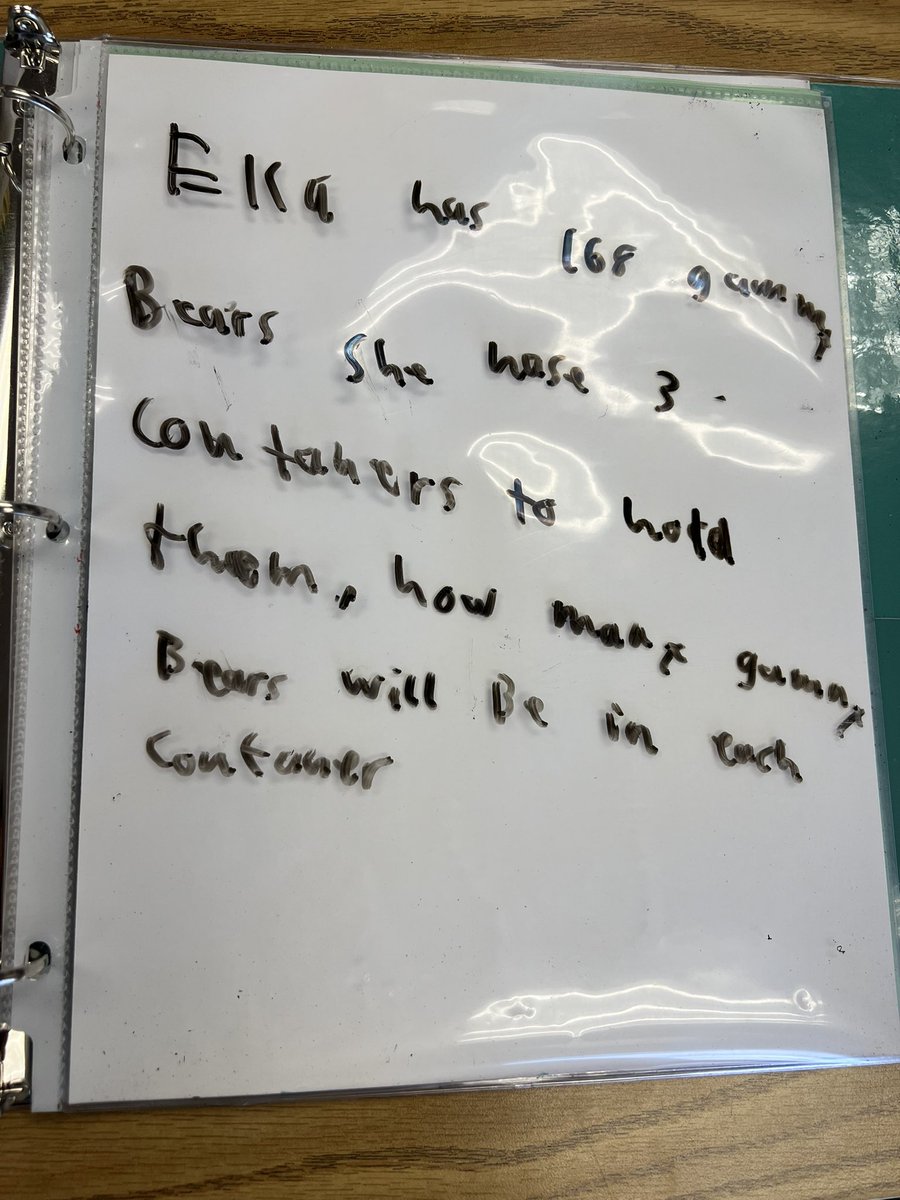 Ella has 168 gummy
Bears She hase 3
Contaners to hold
them, how many gummy
Bears will Be in each
Contaner